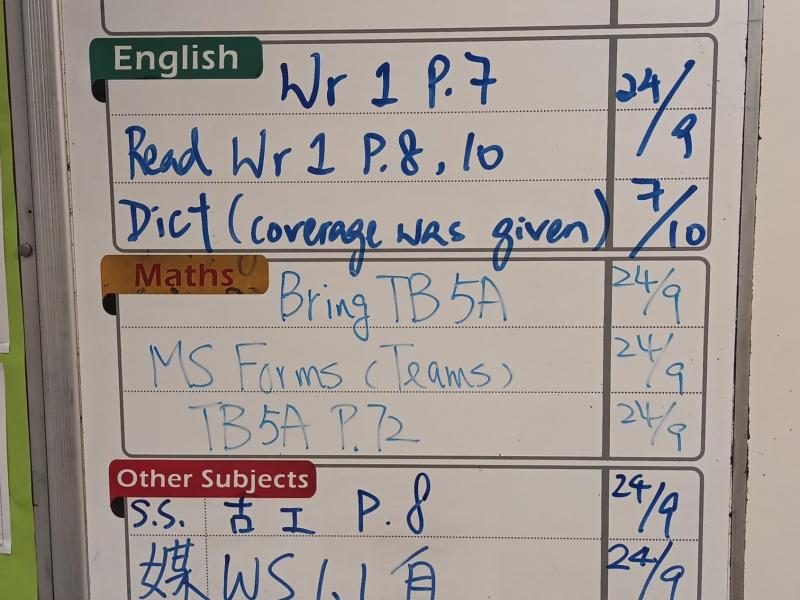 English
Wr 1 P.7 24/9
Read Wr 1 P.8, 10
Dict (coverage was given) 7/10
Maths
Bring TB 5A 24/9
MS Forms (Teams) 24/9
TB 5A P.72 24/9
Other Subjects
S.S. 古工 P.8 24/9
媒 WS 1.1 自 24/9